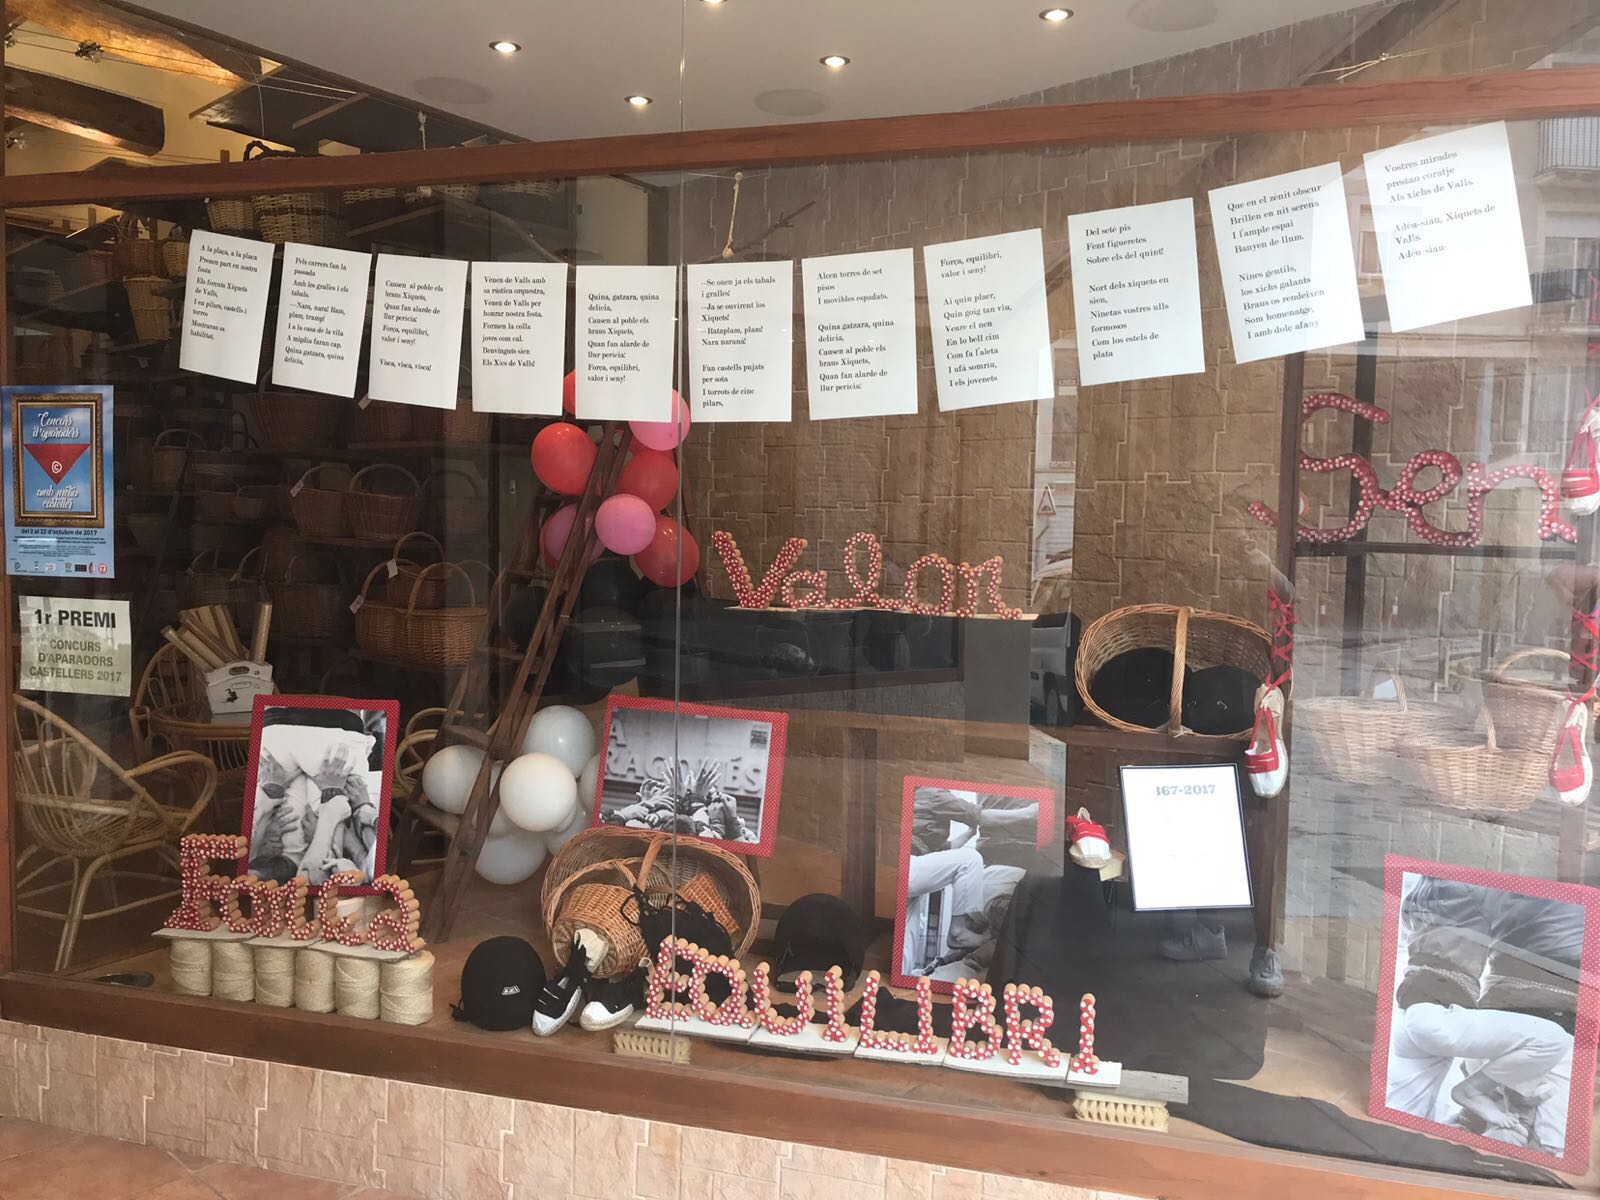 A la plaça, a la plaça
Prenen part en nostra
festa
Els forçuts Xiquets
de Valls,
I en pilars, castells i
torres
Mostraran sa
habilitat.
Pels carrers fan la
passada
Amb les gralles i els
tabals,
—Nara, nara! Ram,
plam, tramp!
I a la casa de la vila
A migdia faran cap.
Quina gatzara, quina
delícia,
Causen al poble els
braus Xiquets,
Quan fan alarde de
llur perícia:
Força, equilibri,
valor i seny!
Visca, visca, visca!
Vénen de Valls amb
sa rústica orquestra,
Venen de Valls per
honrar nostra festa.
Formen la colla
joves com cal.
Benvinguts sien
Els Xics de Valls!
Quina, gatzara, quina
delícia,
Causen al poble els
braus Xiquets,
Quan fan alarde de
llur perícia:
Força, equilibri,
valor i seny!
—Se ouen ja els tabals
i gralles!
—Ja se ouvirent los
Xiquets!
—Rataplam, plam!
Nara naraná!
Fan castells pujats
per sota
I torrots de cinc
pilars,
Alcen torres de set
pisos
I movibles espadats.
Quina gatzara, quina
delícia,
Causen al poble els
braus Xiquets,
Quan fan alarde de
llur perícia:
Força, equilibri,
valor i seny!
Ai quin plaer,
Quin goig tan viu,
Veure el nen
En lo bell cim
Com fa l'aleta
I ufà somriu,
I els jovenets
Del seté pis
Fent figueretes
Sobre els del quint!
Nort dels xiquets en
sien,
Ninetas vostres ulls
formosos
Com los estels de
plata
Que en el zènit obscur
Brillen en nit serena
I l'ample espai
Banyen de llum.
Nines gentils,
los xichs galants
Braus os rendeixen
Som homenatge,
I amb dolç afany
Vostres mirades
prestan coratje
Als xichs de Valls.
Adéu-siau, Xiquets de
Valls.
Adéu-siau-
Concurs
d'aparadors
amb motiu
casteller
del 2 al 22 d'octubre de 2017
1r PREMI
CONCURS
D'APARADORS
CASTELLERS 2017
Valor
Sen
ARAGONÈS
867-2017
Força
EQUILIBRI